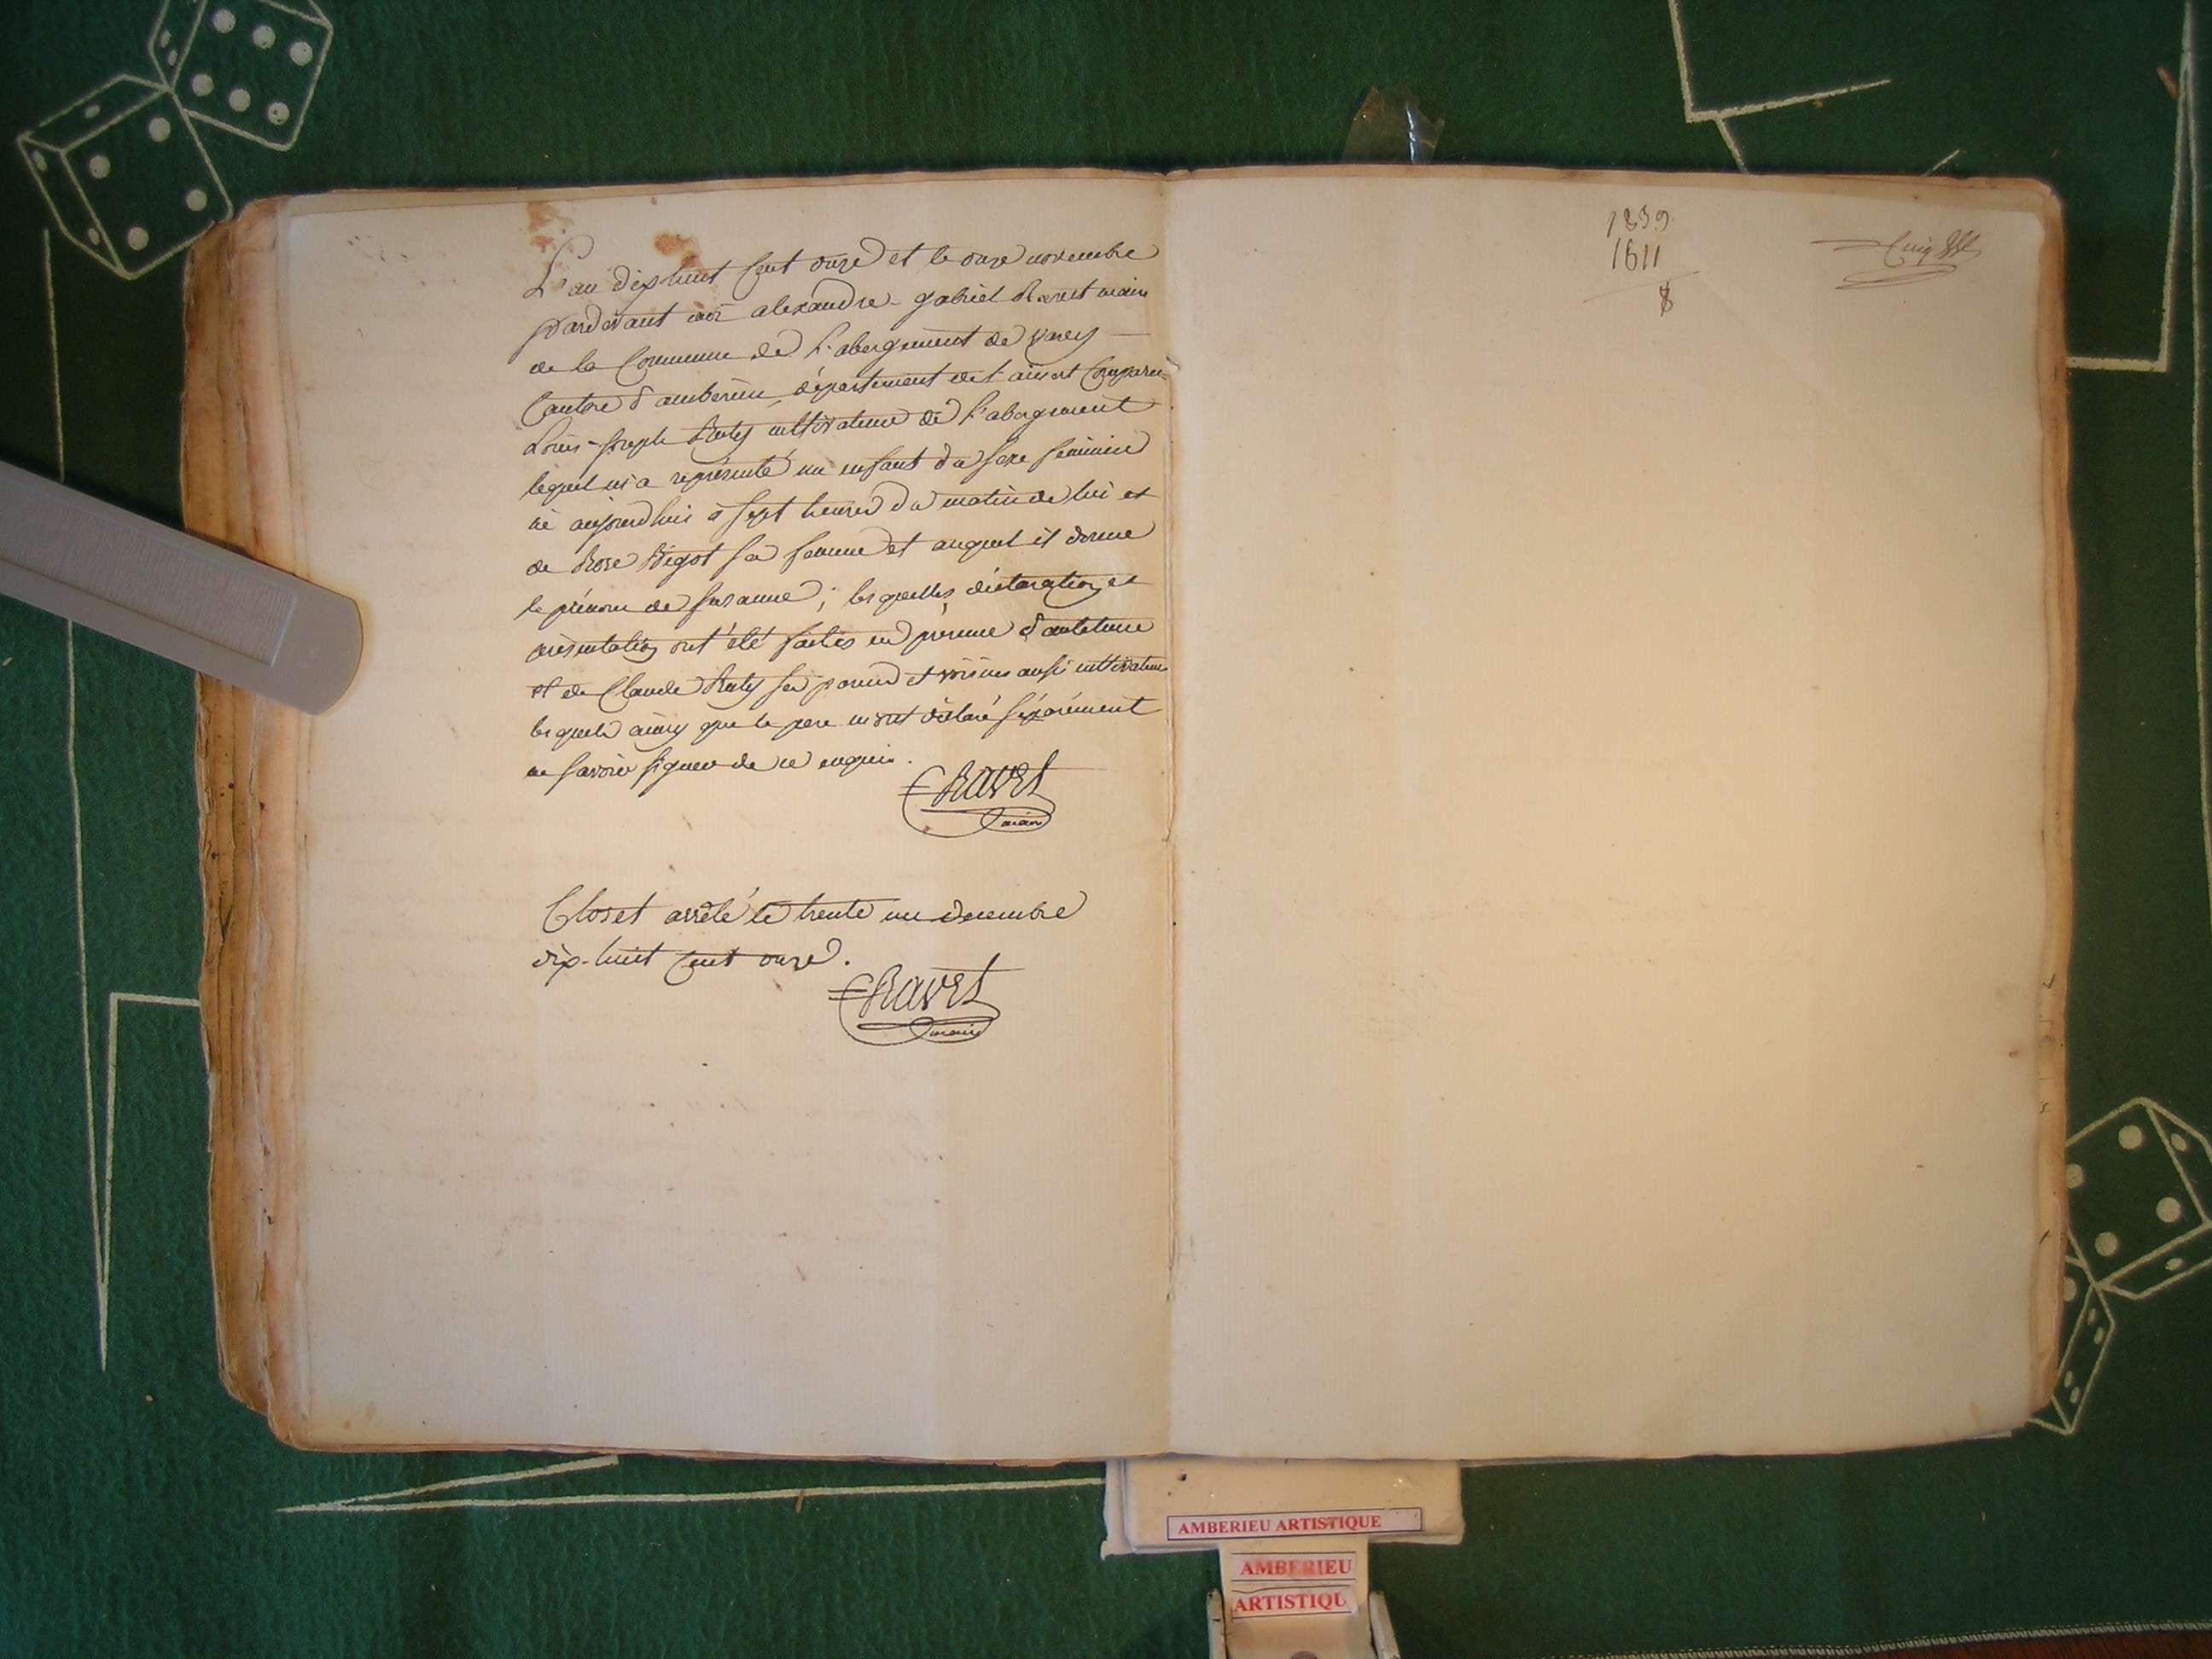 L'an dix huit cent onze et le onze novembre
pardevant moi alexandre - gabriel Ravet maire
de la Commune de L'abergement de varey
Canton d'amberieu, département de l'ain est Comparu
Louis - joseph Ruty cultivateur de L'abergement
lequel m'a représenté un enfant du sexe féminin
né aujourdhui à sept heures du matin de lui et
de Rose Bigot sa femme et auquel il donne
le prénom de susanne ; les quelles déclaration et
présentation ont été faites en présence d'
et de Claude Ruty ses parens et voisins aussi cultivateurs
les quels ainsy que le pere m'ont déclaré séparément
ne savoir signer de ce enquis.
Ravet
maire
Clos et arrêté le trente un décembre
dix-huit cent onze.
Ravet
maire
1839
1811
8
AMBERIEU ARTISTIQUE
AMBERIEU
ARTISTIQU